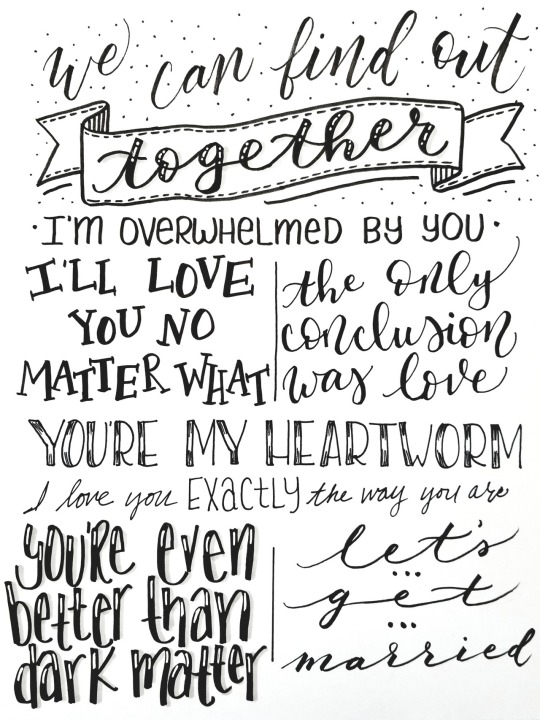 we can find out
together
· I'M OVERWHELMED BY YOU ·
I'LL LOVE
YOU NO
MATTER WHAT
the only
conclusion
was love
YOU'RE MY HEARTWORM
I love you EXACTLY the way you are
you're even
better than
dark matter
let's
...
get
...
married